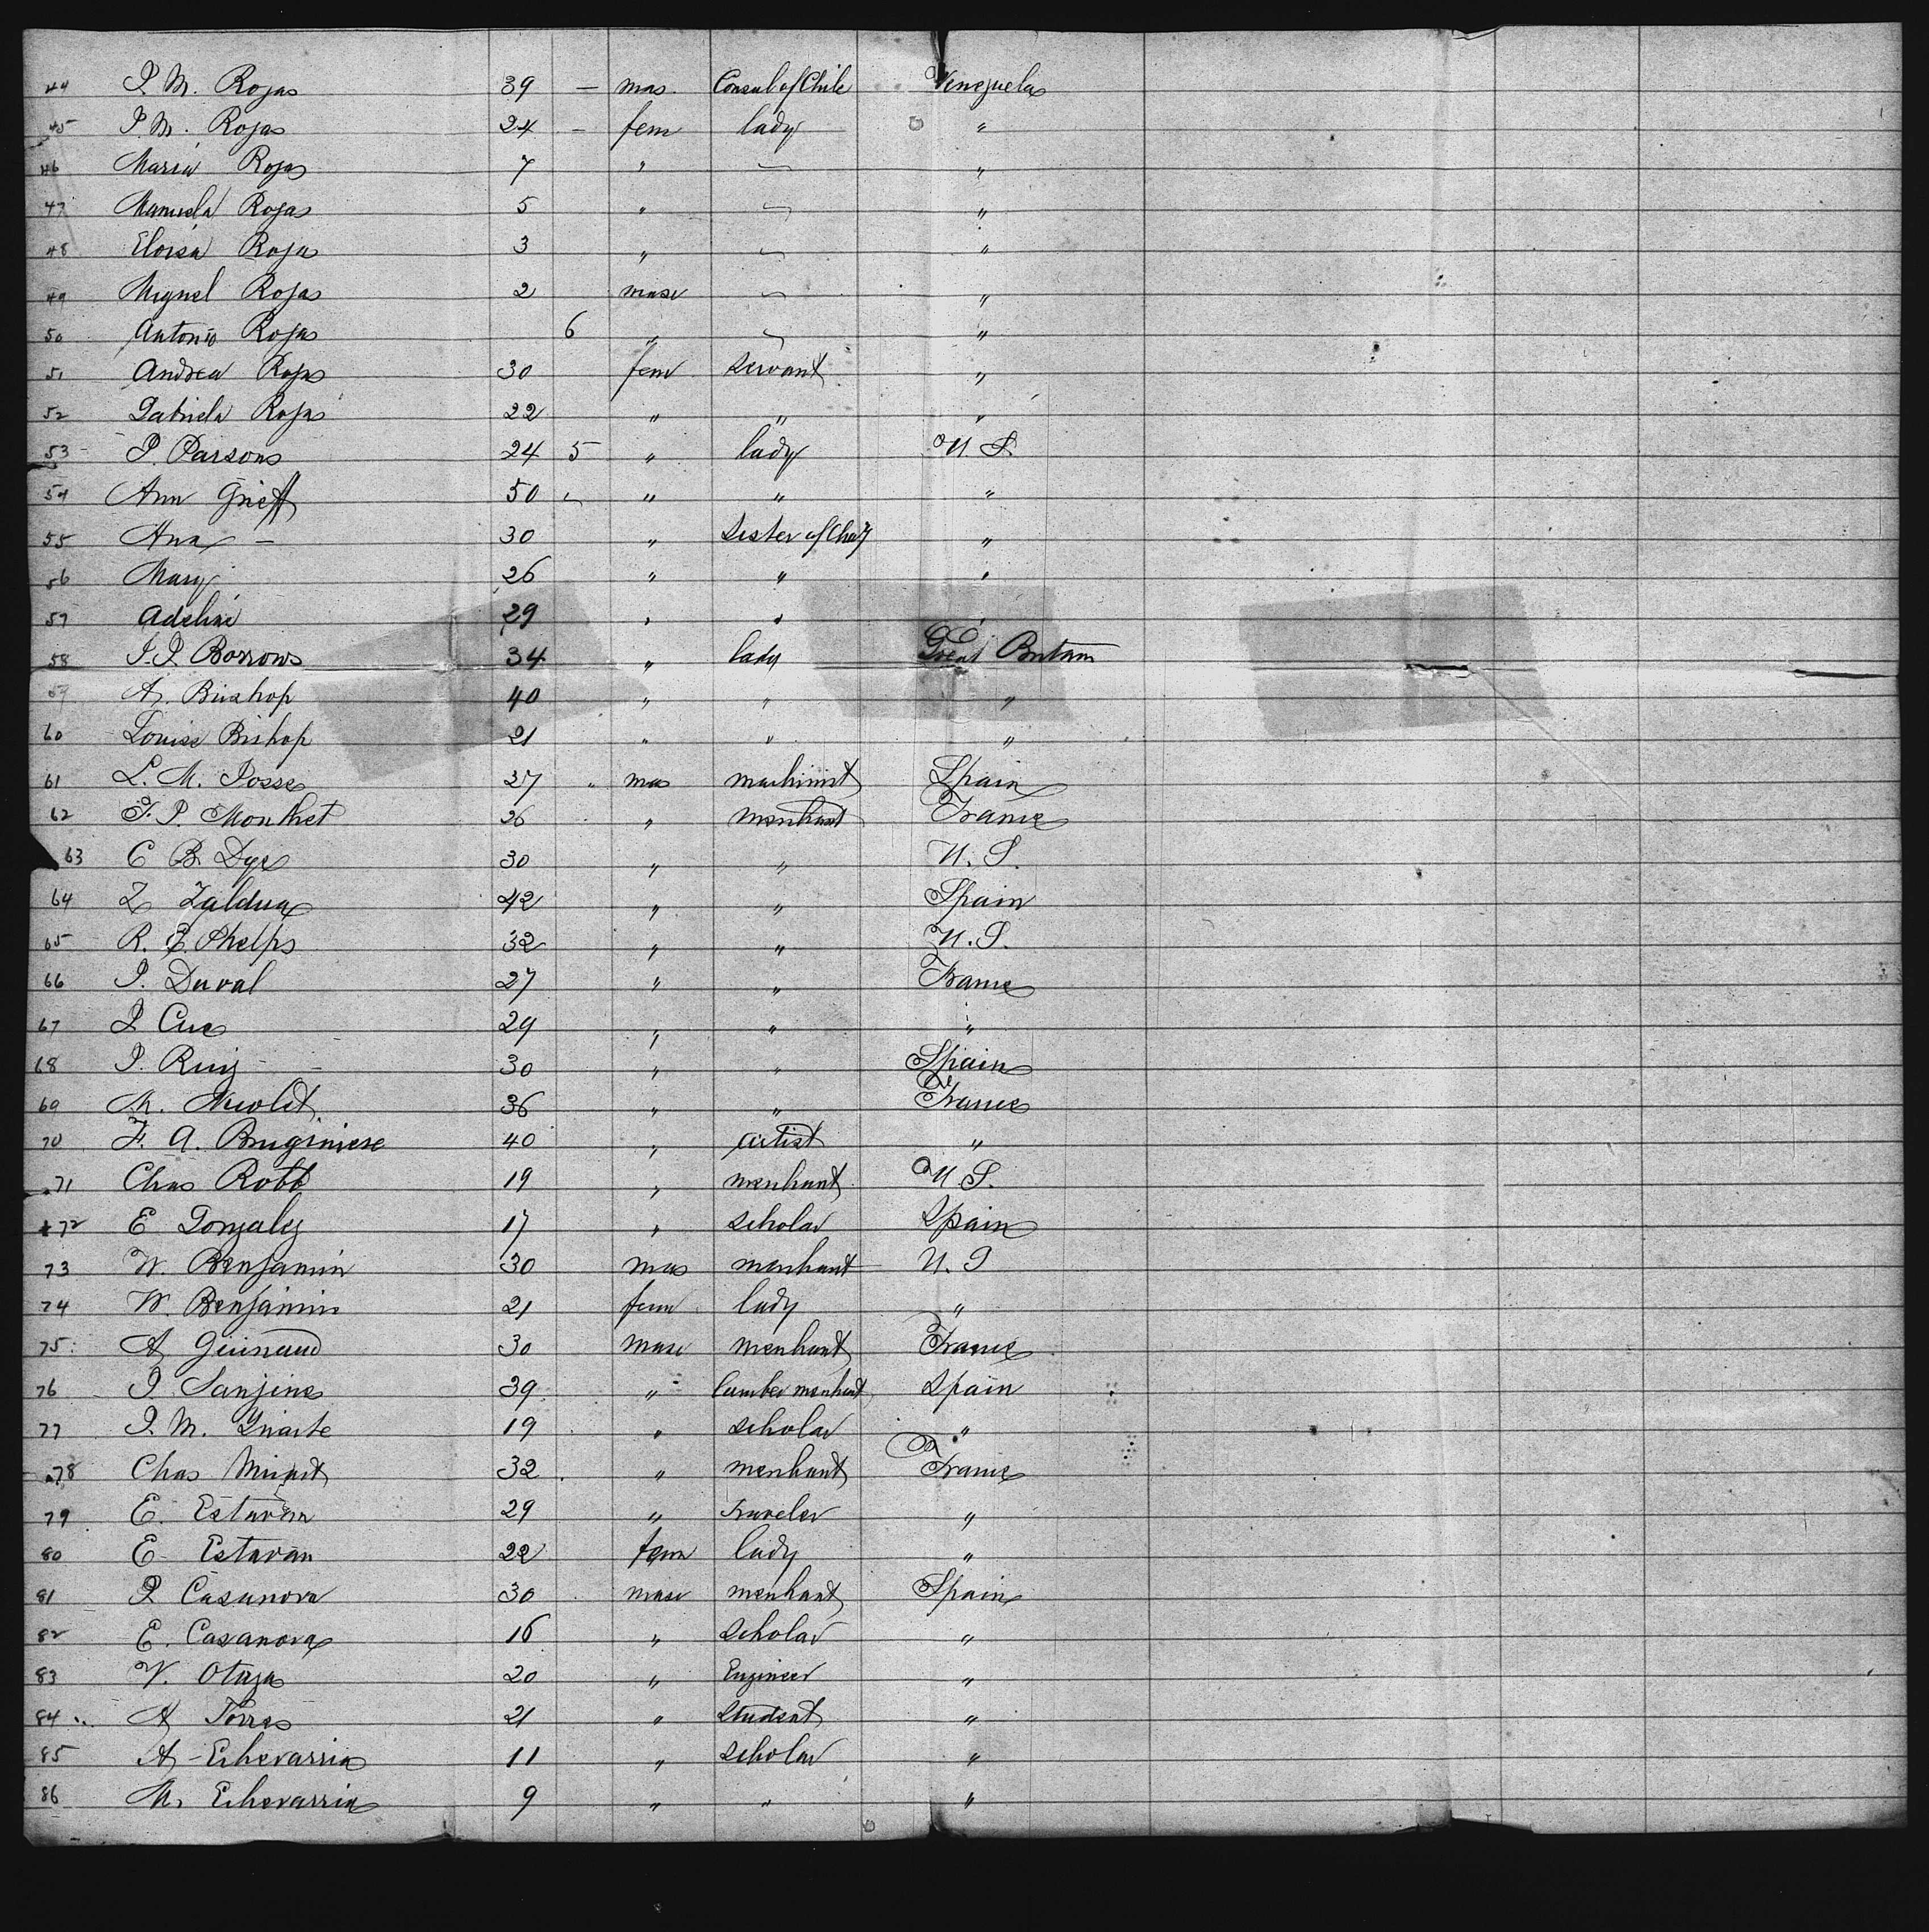 44 P. M. Rojas 39 — mas. Consul of Chile Venezuela
45 P. M. Rojas 24 — fem lady "
46 Maria Rojas 7 " — "
47 Manuela Rojas 5 " — "
48 Eloisa Rojas 3 " — "
49 Miguel Rojas 2 masc — "
50 Antonio Rojas 6 " — "
51 Andrea Rojas 30 fem servant "
52 Gabriela Rojas 22 " " "
53 P. Parsons 24 5 " lady U. S.
54 Ann Grieff 50 " " "
55 Ana — 30 " Sister of Chaty "
56 Mary 26 " " "
57 Adeline 29 " " "
58 J. P. Borrows 34 " lady Great Britain
59 A. Bishop 40 " " "
60 Louise Bishop 21 " " "
61 L. M. Posse 37 " mas machinist Spain
62 F. P. Monthet 26 " merchant France
63 C B. Dye 30 " " U. S.
64 Z Zaldua 42 " " Spain
65 R. E. Phelps 32 " " U. S.
66 P. Duval 27 " " France
67 P. Cue 29 " " "
68 P. Ruiz 30 " " Spain
69 M. Nicolet 36 " " France
70 F. A. Bruginiere 40 " artist "
71 Chas Robb 19 " merchant U. S.
72 E Gonzalez 17 " scholar Spain
73 W. Benjamin 30 mas merchant U. S
74 W. Benjamin 21 fem lady "
75 A 30 masc merchant France
76 P. Sanjines 39 " lumber merchant Spain
77 P. M. Yriarte 19 " scholar "
78 Chas 32 " merchant France
79 E. Estavan 29 " traveler "
80 E. Estavan 22 fem lady "
81 P. Casanova 30 masc merchant Spain
82 E. Casanova 16 " scholar "
83 V. Otaza 20 " Engineer "
84 A Torres 21 " student "
85 A - Echevarria 11 " scholar "
86 M. Echevarria 9 " " "